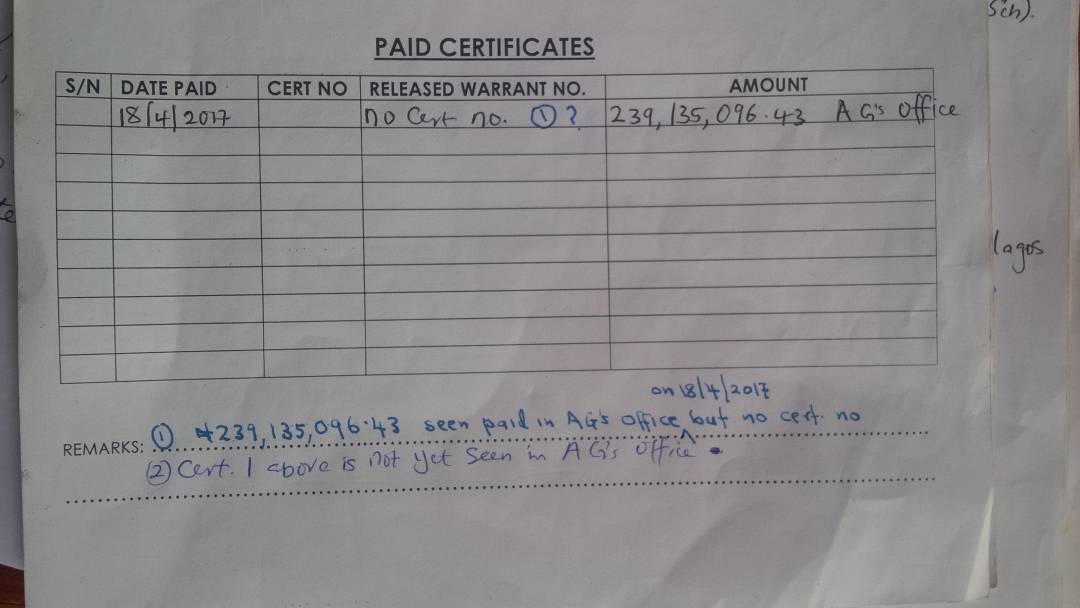 Sch).
PAID CERTIFICATES
S/N DATE PAID CERT NO RELEASED WARRANT NO. AMOUNT
18/4/2017 no Cert no. ① ? 239,135,096.43 AG's Office
lagos
on 18/4/2017
REMARKS: ① ₦239,135,096.43 seen paid in AG's office, but no cert. no
② Cert. 1 above is not yet seen in AG's office.